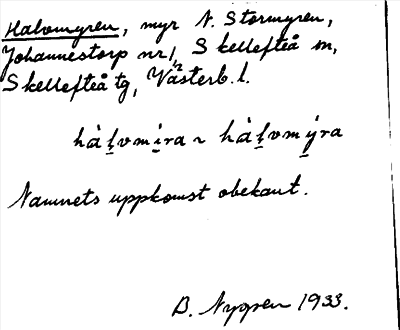 Halvmyren, myr N. Stormyren,
Johannestorp nr 1/2, Skellefteå sn,
Skellefteå tg, Västerb. l.
hàḻvmi̱ra ~ hàḻvmý̱ra
Namnets uppkomst obekant.
B. Nygren 1933.